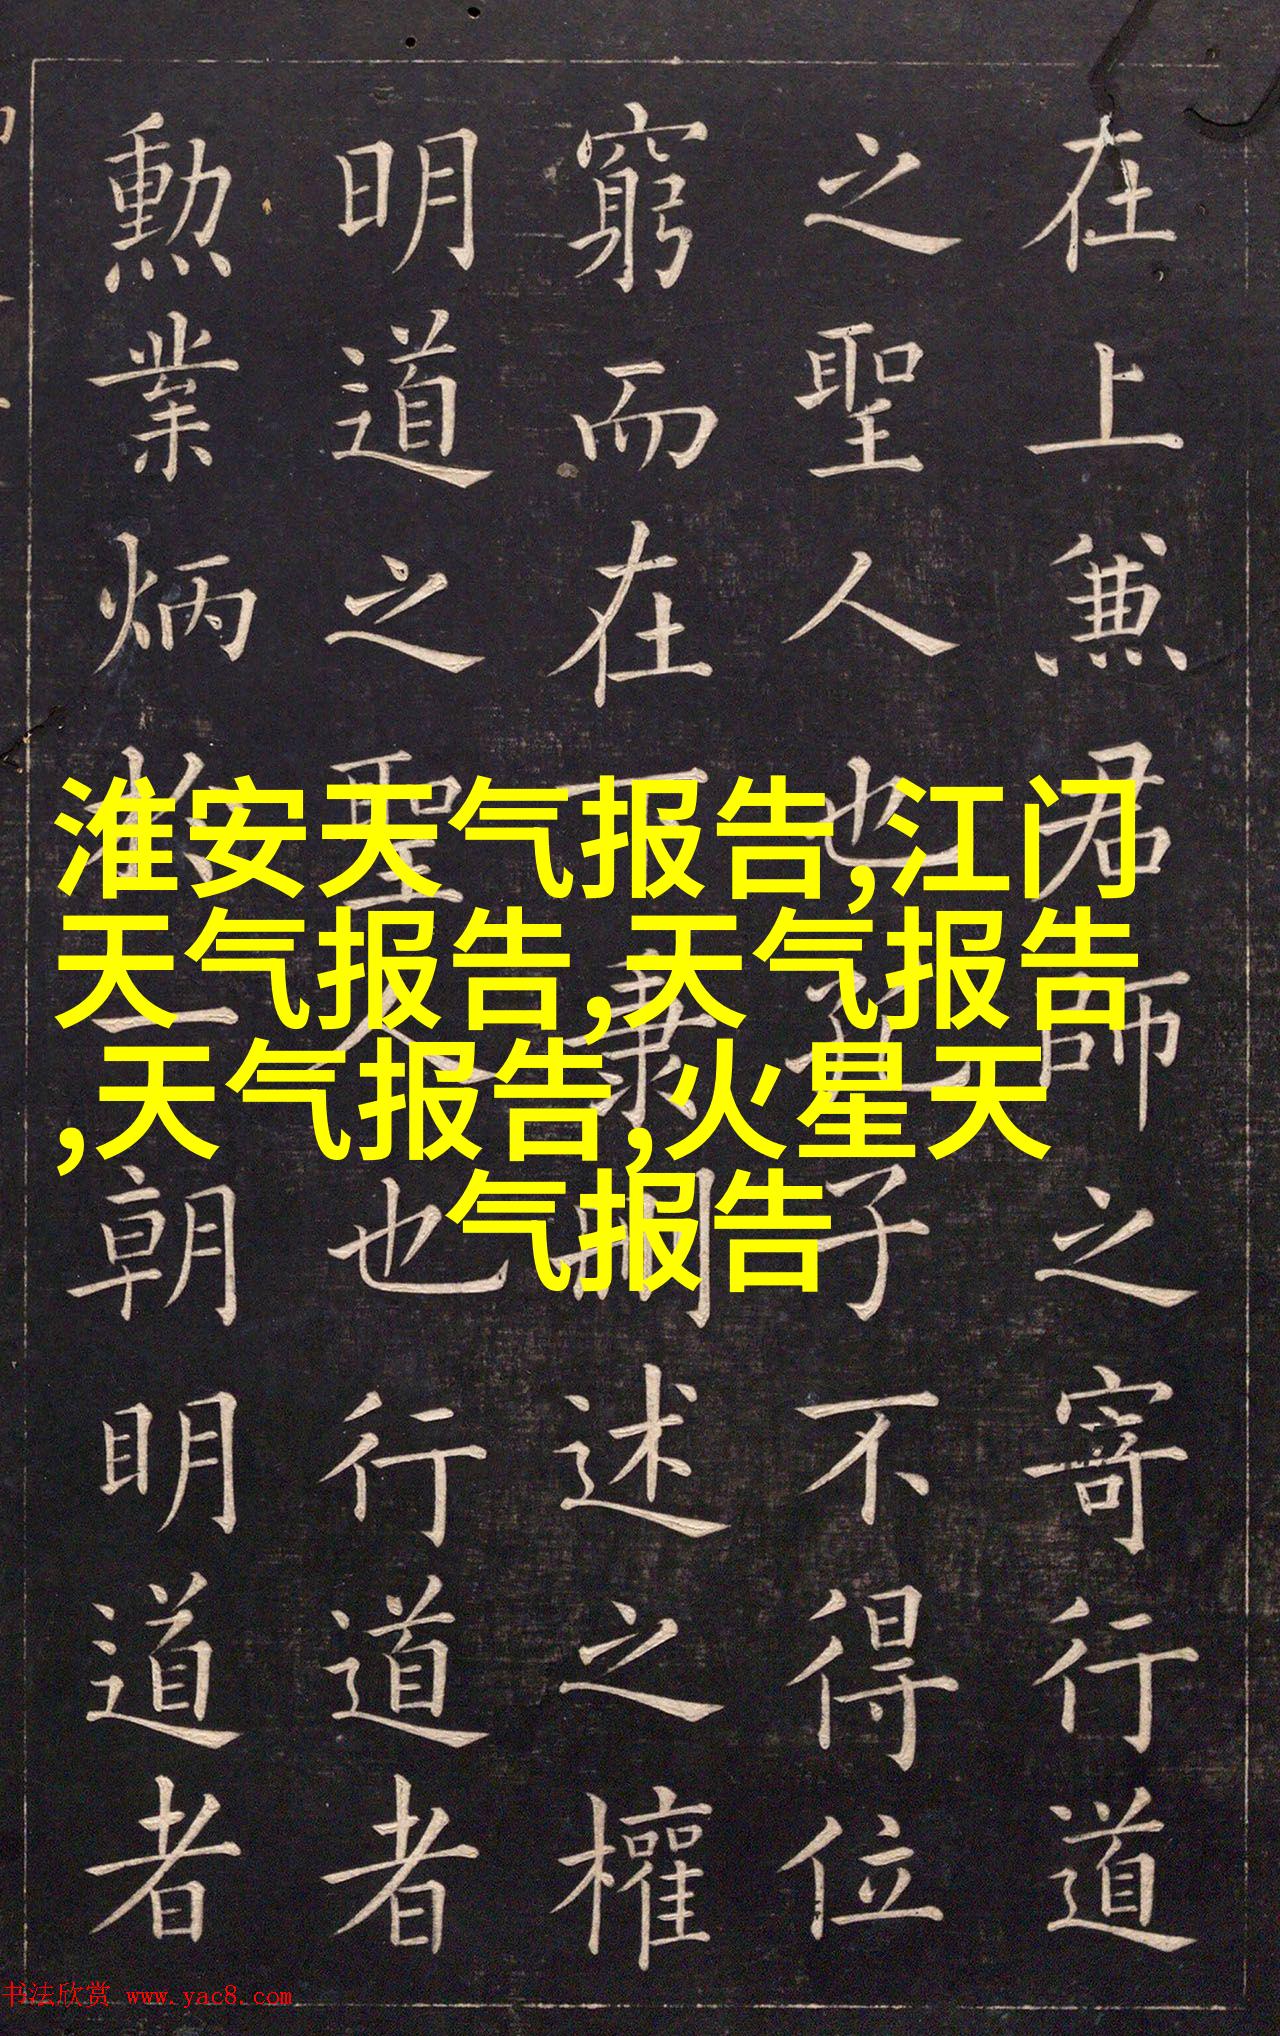 在上兼君師之寄行道
之聖人也孔子不得位
窮而在下秉明述之權
明道之聖人也行道者
勳業炳於一朝明道者
淮安天气报告,江门
天气报告,天气报告
,天气报告,火星天
气报告
书法欣赏 www.yac8.com